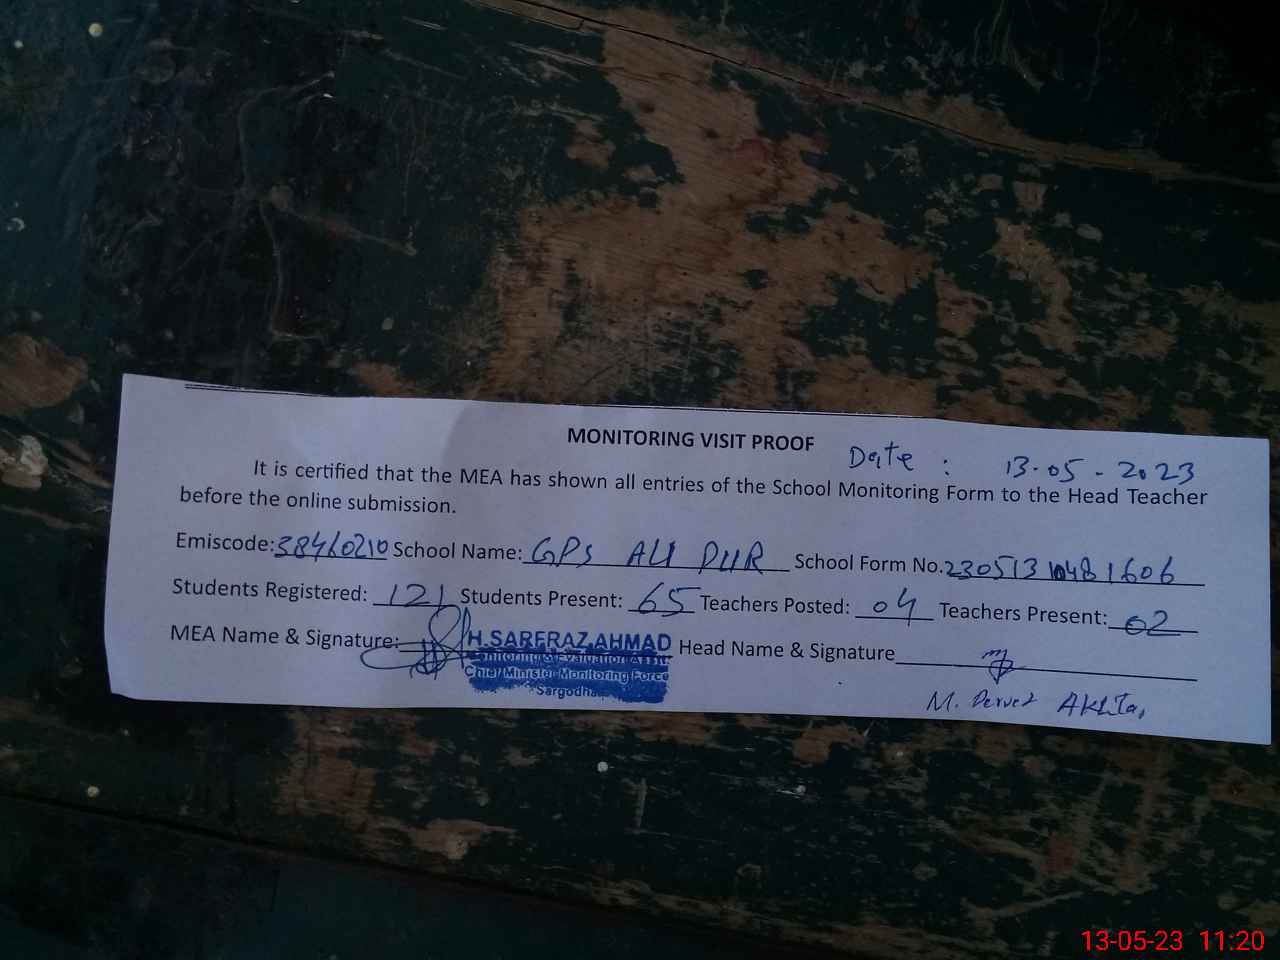 MONITORING VISIT PROOF Date : 13-05-2023
It is certified that the MEA has shown all entries of the School Monitoring Form to the Head Teacher
before the online submission.
Emiscode: 38410210 School Name: GPS ALI PUR School Form No. 230513 10481606
Students Registered: 121 Students Present: 65 Teachers Posted: 04 Teachers Present: 02
MEA Name & Signature: H.SARFRAZ AHMAD Head Name & Signature
Monitoring & Evaluation Asstt.
Chief Minister Monitoring Force
Sargodha
M. Pervez Akhtar
13-05-23 11:20